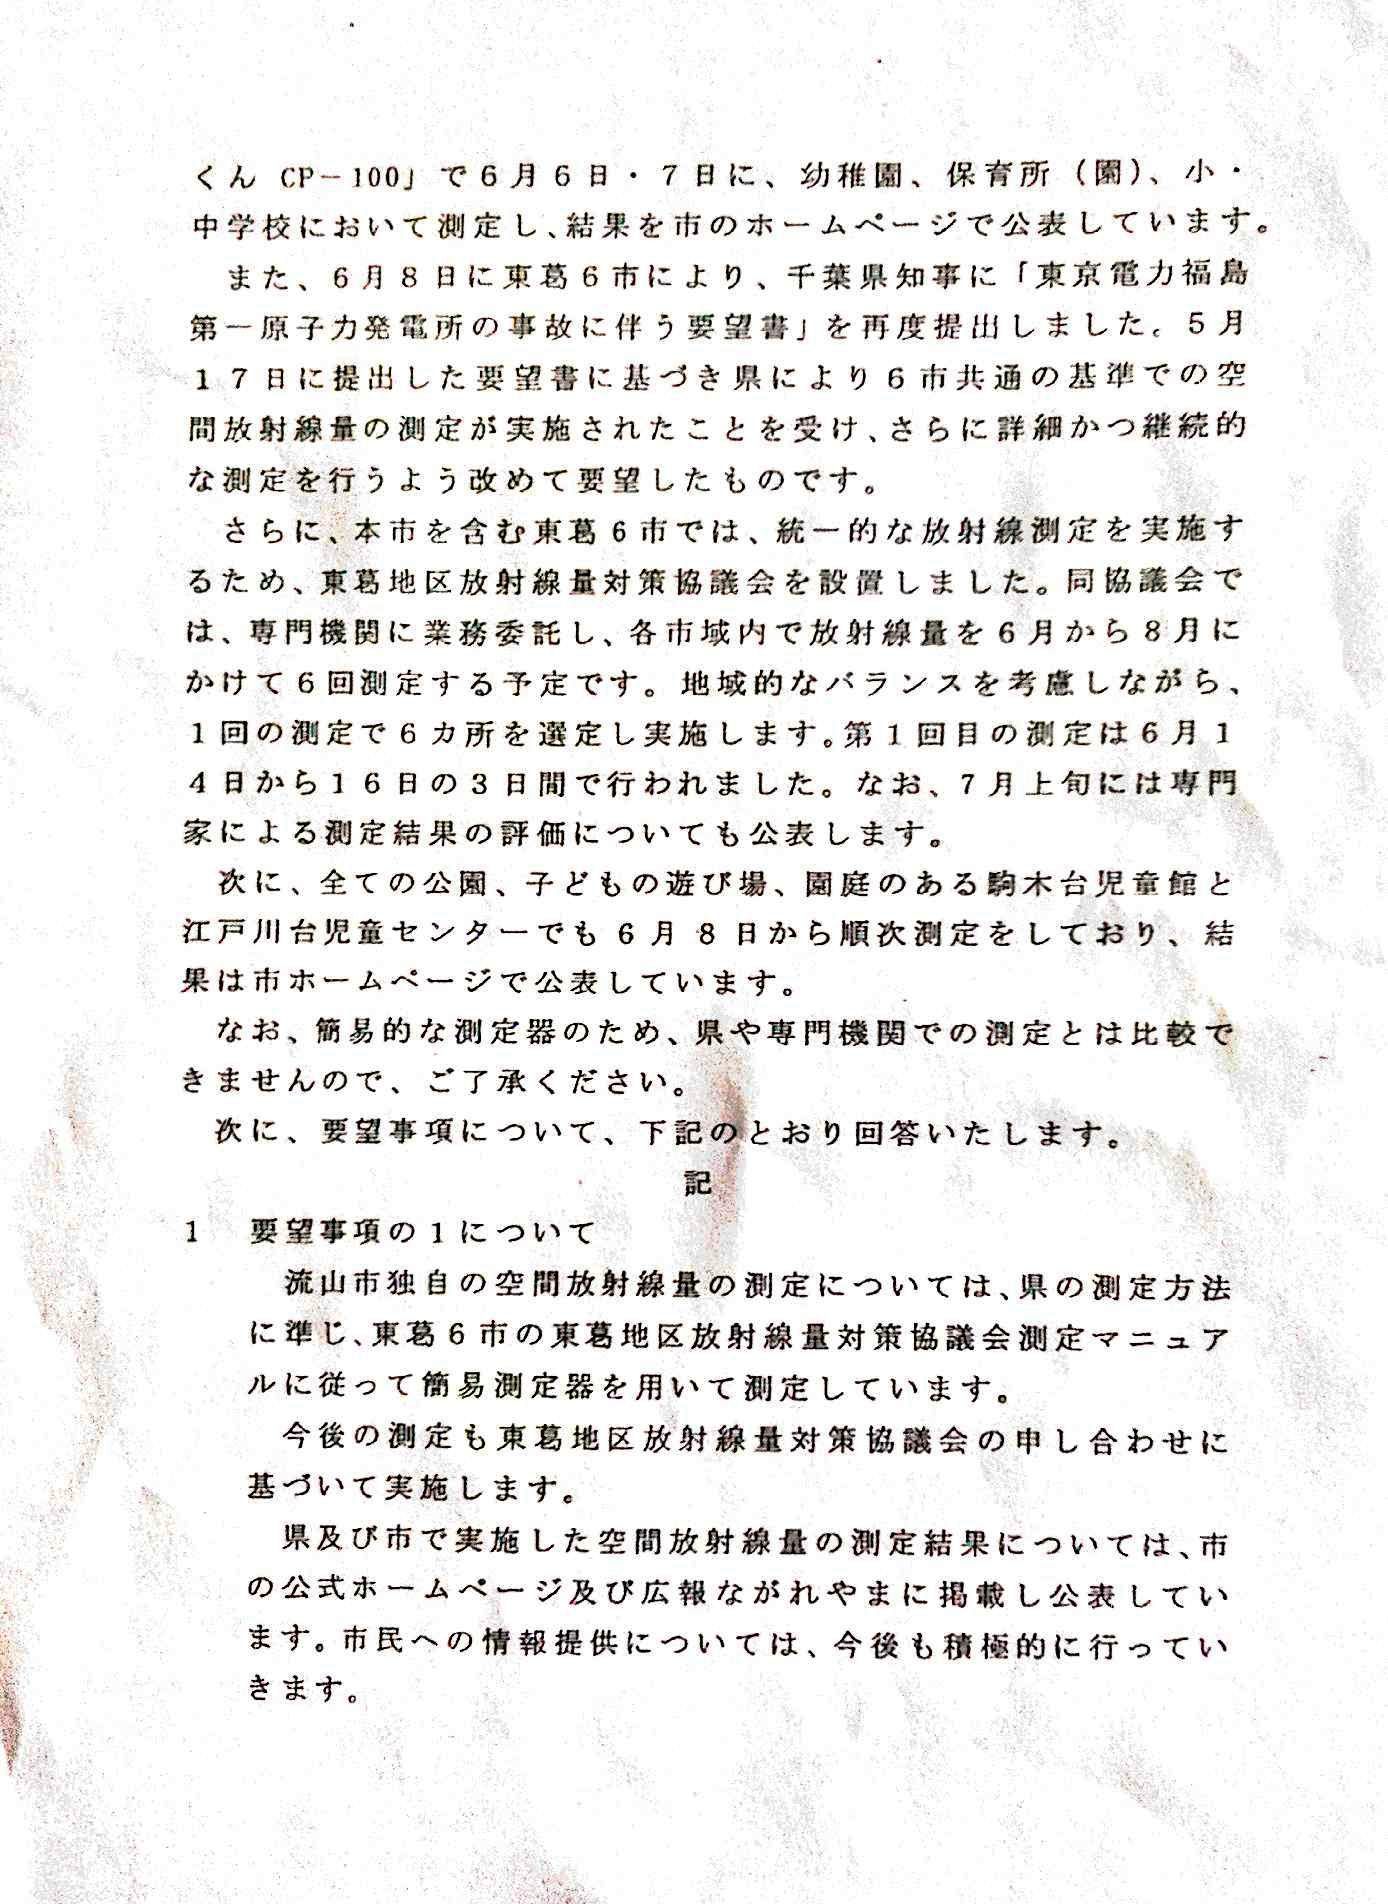 くん CP－100」で６月６日・７日に、幼稚園、保育所（園）、小・
中学校において測定し、結果を市のホームページで公表しています。
　また、６月８日に東葛６市により、千葉県知事に「東京電力福島
第一原子力発電所の事故に伴う要望書」を再度提出しました。５月
１７日に提出した要望書に基づき県により６市共通の基準での空
間放射線量の測定が実施されたことを受け、さらに詳細かつ継続的
な測定を行うよう改めて要望したものです。
　さらに、本市を含む東葛６市では、統一的な放射線測定を実施す
るため、東葛地区放射線量対策協議会を設置しました。同協議会で
は、専門機関に業務委託し、各市域内で放射線量を６月から８月に
かけて６回測定する予定です。地域的なバランスを考慮しながら、
１回の測定で６カ所を選定し実施します。第１回目の測定は６月１
４日から１６日の３日間で行われました。なお、７月上旬には専門
家による測定結果の評価についても公表します。
　次に、全ての公園、子どもの遊び場、園庭のある駒木台児童館と
江戸川台児童センターでも６月８日から順次測定をしており、結
果は市ホームページで公表しています。
　なお、簡易的な測定器のため、県や専門機関での測定とは比較で
きませんので、ご了承ください。
　次に、要望事項について、下記のとおり回答いたします。
記
１　要望事項の１について
　流山市独自の空間放射線量の測定については、県の測定方法
に準じ、東葛６市の東葛地区放射線量対策協議会測定マニュア
ルに従って簡易測定器を用いて測定しています。
　今後の測定も東葛地区放射線量対策協議会の申し合わせに
基づいて実施します。
　県及び市で実施した空間放射線量の測定結果については、市
の公式ホームページ及び広報ながれやまに掲載し公表してい
ます。市民への情報提供については、今後も積極的に行ってい
きます。